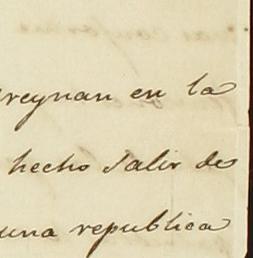 reynan en la
hecho salir de
una republica